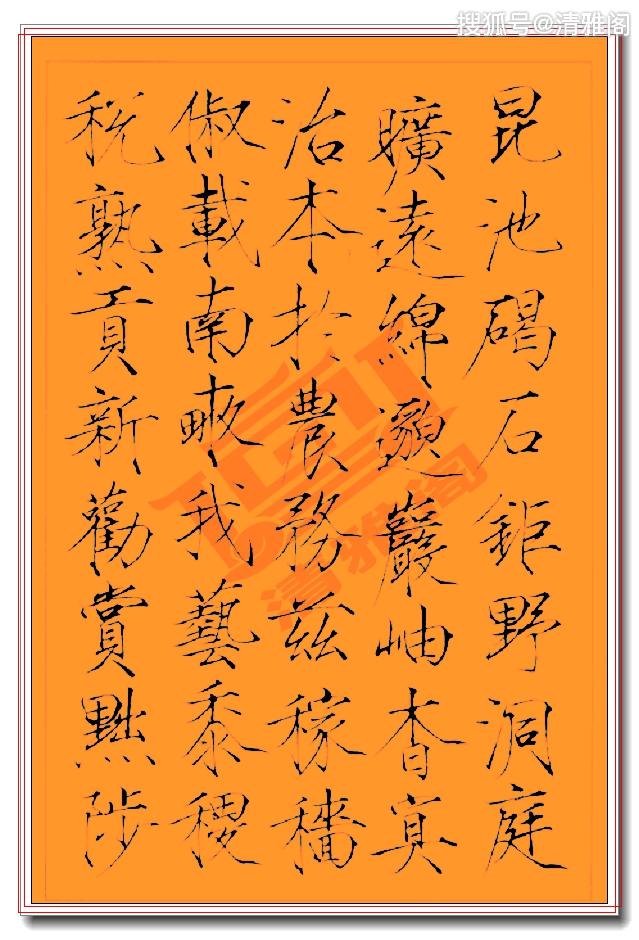 搜狐号@清雅阁
昆池碣石鉅野洞庭
曠遠綿邈巖岫杳冥
治本於農務茲稼穡
俶載南畝我藝黍稷
稅熟貢新勸賞黜陟
清雅阁